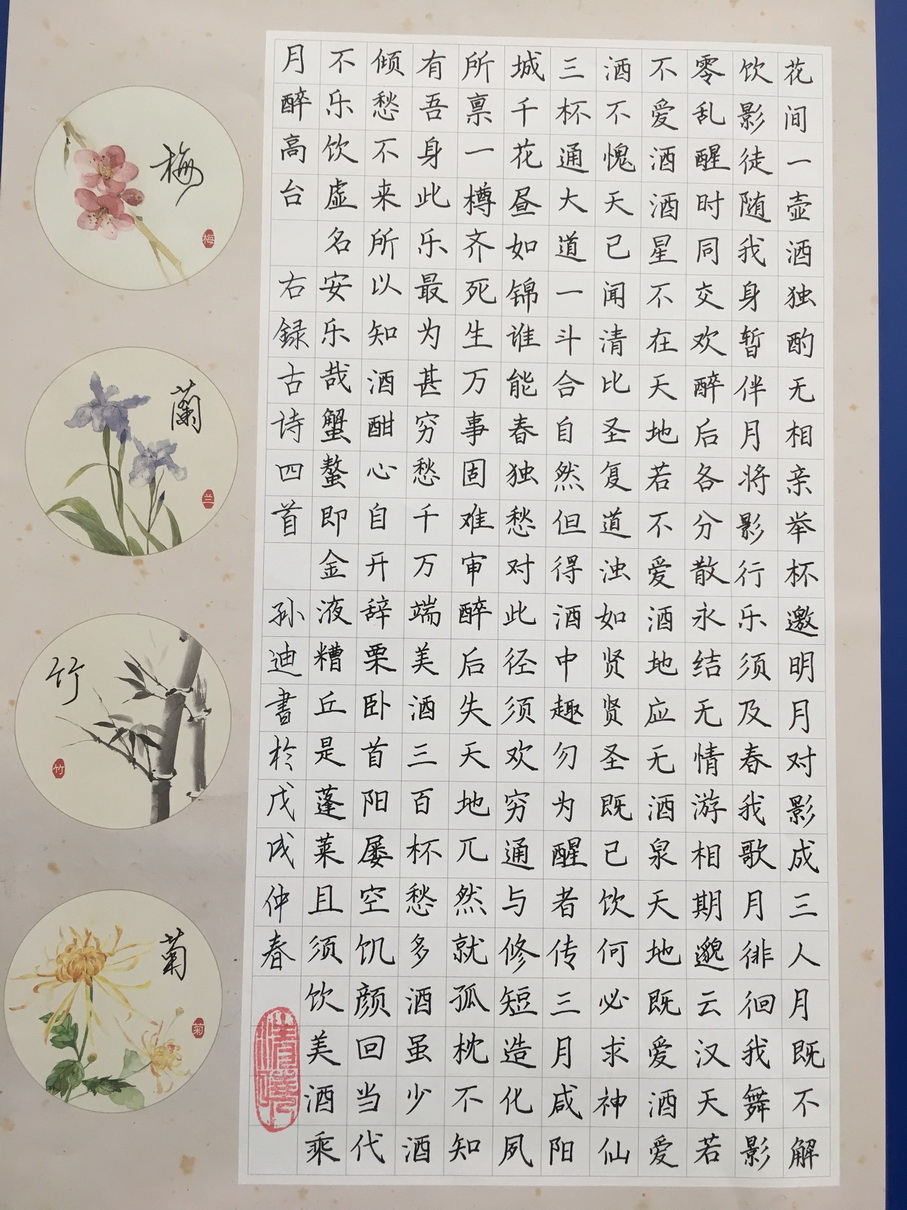 花间一壶酒独酌无相亲举杯邀明月对影成三人月既不解
饮影徒随我身暂伴月将影行乐须及春我歌月徘徊我舞影
零乱醒时同交欢醉后各分散永结无情游相期邈云汉天若
不爱酒酒星不在天地若不爱酒地应无酒泉天地既爱酒爱
酒不愧天已闻清比圣复道浊如贤贤圣既已饮何必求神仙
三杯通大道一斗合自然但得酒中趣勿为醒者传三月咸阳
城千花昼如锦谁能春独愁对此径须欢穷通与修短造化夙
所禀一樽齐死生万事固难审醉后失天地兀然就孤枕不知
有吾身此乐最为甚穷愁千万端美酒三百杯愁多酒虽少酒
倾愁不来所以知酒酣心自开辞栗卧首阳屡空饥颜回当代
不乐饮虚名安乐哉蟹螯即金液糟丘是蓬莱且须饮美酒乘
月醉高台 右録古诗四首 孙迪書於戊戌仲春
梅
梅
蘭
兰
竹
竹
菊
菊